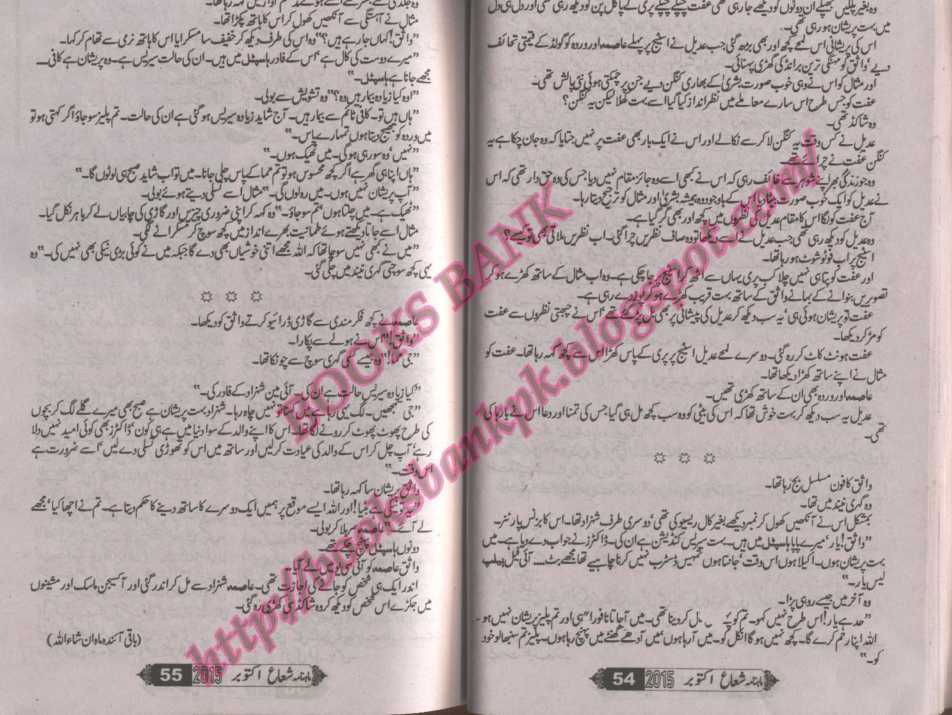 وہ بغیر پلکیں جھپکے ان دونوں کو دیکھے جا رہی تھی عفت چپکے چپکے پری کے پاگل پن کو دیکھ رہی تھی اور دل ہی دل
میں بہت پریشان ہو رہی تھی۔
اس کی پریشانی اس لمحے کچھ اور بھی بڑھ گئی جب عدیل نے اسٹیج پر پہلے عاصمہ اور وردہ کو گولڈ کے قیمتی تحائف
دیے واثق کو مہنگی ترین برانڈ کی گھڑی پہنائی۔
اور مثال کو اس نے وہی خوب صورت بشریٰ کے بھاری کنگن دیے جن پر چمکتی ہوئی نئی پالش تھی۔
عفت کو جس طرح اس سارے معاملے میں نظر انداز کیا گیا اسے بہت کھلا لیکن یہ کنگن؟
وہ شاکڈ تھی۔
عدیل نے کس وقت یہ کنگن لاکر سے نکالے اور اس نے ایک بار بھی عفت پر نہیں جتایا کہ وہ جان چکا ہے یہ
کنگن عفت نے چرائے تھے۔
وہ جو زندگی بھر اپنے شوہر سے خائف رہی کہ اس نے کبھی اسے وہ جائز مقام نہیں دیا جس کی وہ حق دار تھی کہ اس
نے عدیل کو ایک خوب صورت بیٹا دیا اس کے باوجود وہ ہمیشہ بشریٰ اور مثال کو ترجیح دیتا رہا۔
آج عفت کو لگا اس کا مقام عدیل کی نظروں میں کچھ اور بھی گر گیا ہے۔
وہ عدیل کو دیکھ رہی تھی جب عدیل نے اسے دیکھا تو وہ صاف نظریں چرا گئی۔ اب نظریں ملاتی بھی تو کیسے؟
اسٹیج پر اب فوٹو شوٹ ہو رہا تھا۔
اور عفت کو پتا ہی نہیں چلا کب پری یہاں سے اٹھ کر اسٹیج پر جا چکی ہے۔ وہ اب مثال کے ساتھ کھڑے ہو کر
تصویریں بنوانے کے بہانے واثق کے ساتھ بہت قریب کھڑے ہو کر پوز دے رہی ہے۔
عفت تو پریشان ہوئی ہی یہ سب دیکھ کر عدیل کی پیشانی پر بھی بل پڑ گئے تھے اس نے چبھتی نظروں سے عفت
کو مڑ کر دیکھا۔
عفت ہونٹ کاٹ کر رہ گئی۔ دوسرے لمحے عدیل اسٹیج پر پری کے پاس کھڑا اس سے کچھ کہہ رہا تھا۔ عفت کو
مثال نے اپنے ساتھ کھڑا دیکھا تھا۔
عاصمہ اور وردہ بھی ان کے ساتھ کھڑی تھیں۔
عدیل یہ سب دیکھ کر بہت خوش تھا کہ اس کی بیٹی کو وہ سب کچھ مل ہی گیا جس کی تمنا اور دعا اس نے بارہا کی
تھی۔
واثق کا فون مسلسل بج رہا تھا۔
وہ گہری نیند میں تھا۔
بمشکل اس نے آنکھیں کھول کر نمبر دیکھے بغیر کال ریسیو کی تھی دوسری طرف شہزاد تھا۔ اس کا بزنس پارٹنر۔
"واثق! یار میرے پاپا ہاسپٹل میں ہیں۔ بہت سیریس کنڈیشن ہے ان کی۔ ڈاکٹرز نے جواب دے دیا ہے۔ میں
بہت پریشان ہوں۔ اکیلا ہوں اس وقت جانتا ہوں تمہیں ڈسٹرب نہیں کرنا چاہیے تھا مجھے بٹ... آئی فیل ہیلپ
لیس یار۔"
وہ آخر میں جیسے رو ہی پڑا۔
"حد ہے یار! اس طرح نہیں کہو۔ تم کو پہلے کال کر دینا تھی۔ میں آ جاتا نا فورا" ہی اور تم پلیز پریشان نہیں ہو۔
اللہ اپنا رحم کرے گا۔ کچھ نہیں ہو گا انکل کو۔ میں آ رہا ہوں میں آدھے گھنٹے میں پہنچ رہا ہوں۔ پلیز تم سنبھالو خود
کو۔"
ماہنامہ شعاع اکتوبر 2015 54
مثال نے آہستگی سے آنکھیں کھول کر اس کا ہاتھ پکڑا تھا۔
"واثق! کہاں جا رہے ہیں؟" وہ اس کی طرف دیکھ کر خفیف سا مسکرایا اس کا ہاتھ نرمی سے تھام کر کہا۔
"میرے دوست کی کال ہے اس کے فادر ہاسپٹل میں ہیں۔ ان کی حالت سیریس ہے۔ وہ پریشان ہے کافی...
مجھے جانا ہے ہاسپٹل۔"
"اوہ کیا زیادہ بیمار ہیں وہ؟" وہ تشویش سے بولی۔
"ہاں ہیں تو۔ کافی ٹائم سے بیمار ہیں۔ آج شاید زیادہ سیریس ہو گئی ہے ان کی حالت۔ تم پلیز سو جاؤ اگر کہتی ہو تو
میں وردہ کو بھیج دیتا ہوں تمہارے پاس۔"
"نہیں وہ سو رہی ہو گی۔ میں ٹھیک ہوں۔"
"ہاں اپنا ہی گھر ہے اگر کچھ محسوس ہو تو تم مما کے پاس چلی جانا۔ میں تو اب شاید صبح ہی لوٹوں گا۔"
"آپ پریشان نہیں ہوں۔ میں رہ لوں گی۔" مثال اسے تسلی دیتے ہوئے بولی۔
"ٹھیک ہے۔ میں چلتا ہوں تم سو جاؤ۔" وہ کہہ کر اپنی ضروری چیزیں اور گاڑی کی چابیاں لے کر باہر نکل گیا۔
مثال اسے جاتا دیکھتے ہوئے طمانیت بھرے انداز میں کچھ سوچ کر مسکرانے لگی۔
"میں نے کبھی نہیں سوچا تھا کہ اللہ مجھے اتنی خوشیاں بھی دے گا جبکہ میں نے کوئی بڑی نیکی بھی نہیں کی۔" وہ
یہی کچھ سوچتی گہری نیند میں چلی گئی۔
عاصمہ نے کچھ فکر مندی سے گاڑی ڈرائیو کرتے واثق کو دیکھا۔
"واثق!" اس نے ہولے سے پکارا۔
"جی مما!" وہ جیسے کسی گہری سوچ سے چونکا تھا۔
"کیا زیادہ سیریس حالت ہے ان کی۔ آئی مین شہزاد کے فادر کی۔"
"جی سمجھیں۔ لگ یہی رہا ہے میں کہنا تو نہیں چاہ رہا۔ شہزاد بہت پریشان ہے صبح بھی میرے گلے لگ کر بچوں
کی طرح پھوٹ پھوٹ کر رونے لگا تھا۔ اس کا اپنے والد کے سوا دنیا میں ہے ہی کون ڈاکٹرز بھی کوئی امید نہیں دلا
رہے آپ چل کر اس کے والد کی عیادت کر لیں اور ساتھ میں اس کو تھوڑی تسلی دے دیں اسے ضرورت ہے
اس وقت۔"
واثق پریشان سا کہہ رہا تھا۔
نیکی ہے بیٹا! اور اللہ ایسے موقع پر ہمیں ایک دوسرے کا ساتھ دینے کا حکم دیتا ہے۔ تم نے اچھا کیا مجھے
لے آئے۔" عاصمہ سر ہلا کر بولی۔
دونوں ہاسپٹل پہنچ چکے تھے۔
واثق عاصمہ کو آئی سی یو میں لے گیا۔
اندر ایک ہی شخص کو جانے کی اجازت تھی۔ عاصمہ شہزاد سے مل کر اندر گئی اور آکسیجن ماسک اور مشینوں
میں جکڑے اس شخص کو دیکھ کر وہ شاکڈ سی کھڑی رہ گئی۔
(باقی آئندہ ماہ ان شاء اللہ)
ماہنامہ شعاع اکتوبر 2015 55
BOOKS BANK
http://booksbankpk.blogspot.com/